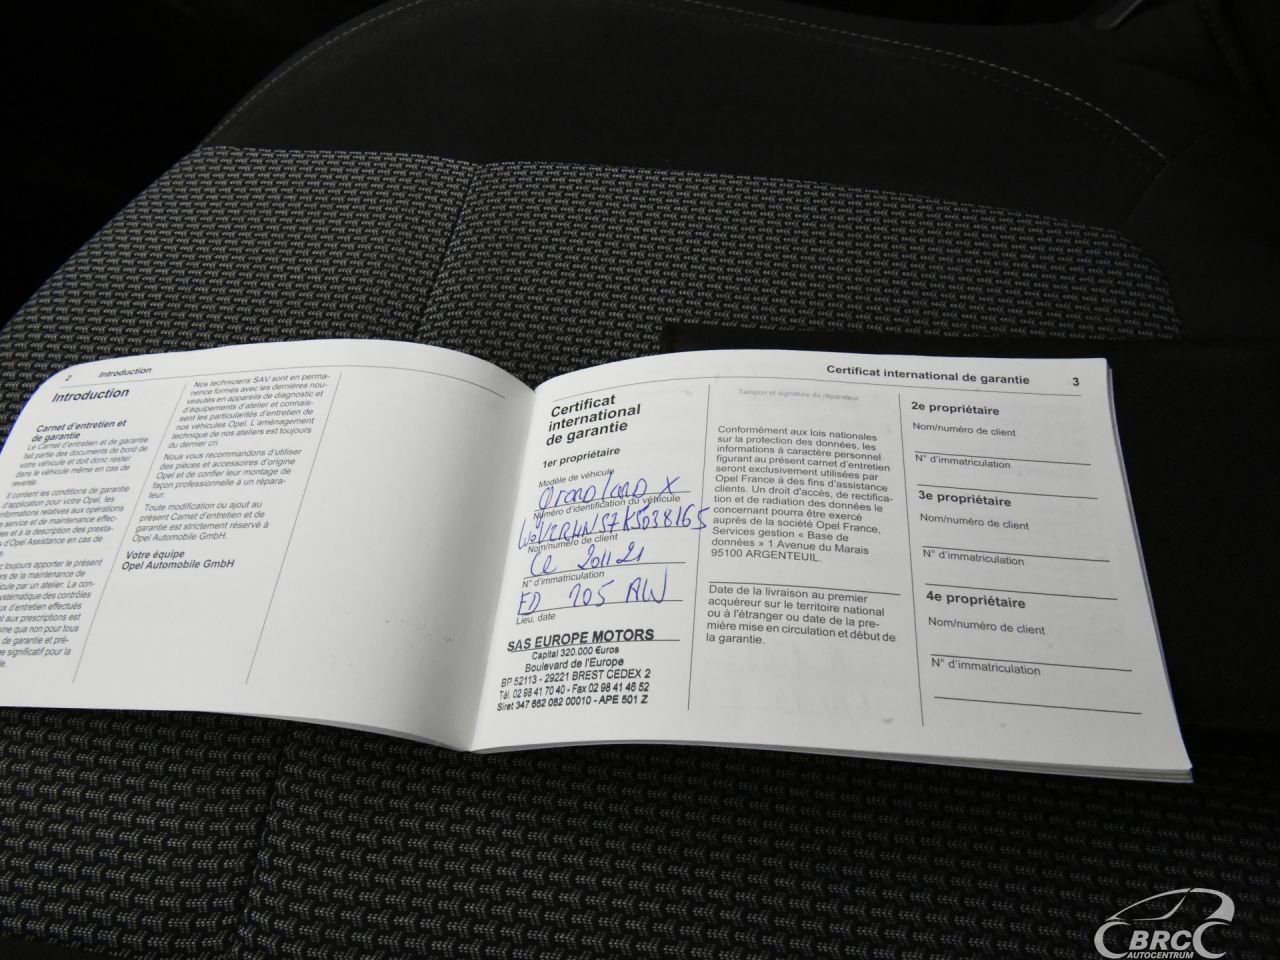 2 Introduction
Introduction
Carnet d'entretien et
de garantie
Le Carnet d'entretien et de garantie
fait partie des documents de bord de
votre véhicule et doit donc rester
dans le véhicule même en cas de
revente.
Il contient les conditions de garantie
d'application pour votre Opel, les
informations relatives aux opérations
service et de maintenance effec-
et à la description des presta-
d'Opel Assistance en cas de
toujours apporter le présent
lors de la maintenance de
par un atelier. La con-
systématique des contrôles
d'entretien effectués
aux prescriptions est
qua non pour tous
de garantie et pré-
significatif pour la
Nos techniciens SAV sont en perma-
nence formés avec les dernières nou-
veautés en appareils de diagnostic et
d'équipements d'atelier et connais-
sent les particularités d'entretien de
nos véhicules Opel. L'aménagement
technique de nos ateliers est toujours
du dernier cri.
Nous vous recommandons d'utiliser
des pièces et accessoires d'origine
Opel et de confier leur montage de
façon professionnelle à un répara-
teur.
Toute modification ou ajout au
présent Carnet d'entretien et de
garantie est strictement réservé à
Opel Automobile GmbH.
Votre équipe
Opel Automobile GmbH
Certificat international de garantie 3
Certificat
international
de garantie
1er propriétaire
Modèle de véhicule
Grandland X
Numéro d'identification du véhicule
Nom/numéro de client
201121
N° d'immatriculation
FD 705 AW
Lieu, date
SAS EUROPE MOTORS
Capital 320.000 €uros
Boulevard de l'Europe
BP 52113 - 29221 BREST CEDEX 2
Tél. 02 98 41 70 40 - Fax 02 98 41 46 52
Siret 347 662 082 00010 - APE 501 Z
Tampon et signature du réparateur
Conformément aux lois nationales
sur la protection des données, les
informations à caractère personnel
figurant au présent carnet d'entretien
seront exclusivement utilisées par
Opel France à des fins d'assistance
clients. Un droit d'accès, de rectifica-
tion et de radiation des données le
concernant pourra être exercé
auprès de la société Opel France,
Services gestion « Base de
données » 1 Avenue du Marais
95100 ARGENTEUIL.
Date de la livraison au premier
acquéreur sur le territoire national
ou à l'étranger ou date de la pre-
mière mise en circulation et début de
la garantie.
2e propriétaire
Nom/numéro de client
N° d'immatriculation
3e propriétaire
Nom/numéro de client
N° d'immatriculation
4e propriétaire
Nom/numéro de client
N° d'immatriculation
BRC
AUTOCENTRUM